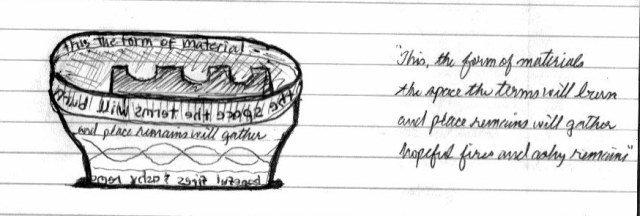 this the form of material
the space the terms will burn
and place remains will gather
hopeful fires & ashy
"This, the form of materials
the space the terms will burn
and place remains will gather
hopeful fires and ashy remains"